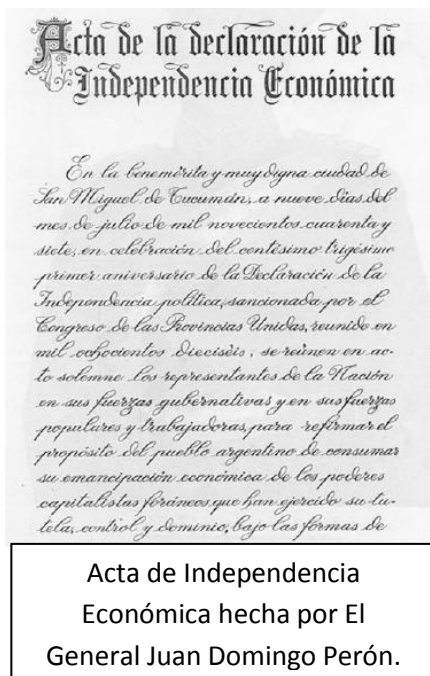 Acta de la declaración de la
Independencia Económica
En la benemérita y muy digna ciudad de
San Miguel de Tucumán, a nueve días del
mes de julio de mil novecientos cuarenta y
siete, en celebración del centésimo trigésimo
primer aniversario de la Declaración de la
Independencia política, sancionada por el
Congreso de las Provincias Unidas, reunido en
mil ochocientos dieciséis, se reúnen en ac-
to solemne los representantes de la Nación
en sus fuerzas gubernativas y en sus fuerzas
populares y trabajadoras, para refirmar el
propósito del pueblo argentino de consumar
su emancipación económica de los poderes
capitalistas foráneos que han ejercido su tu-
tela, control y dominio, bajo las formas de
Acta de Independencia
Económica hecha por El
General Juan Domingo Perón.